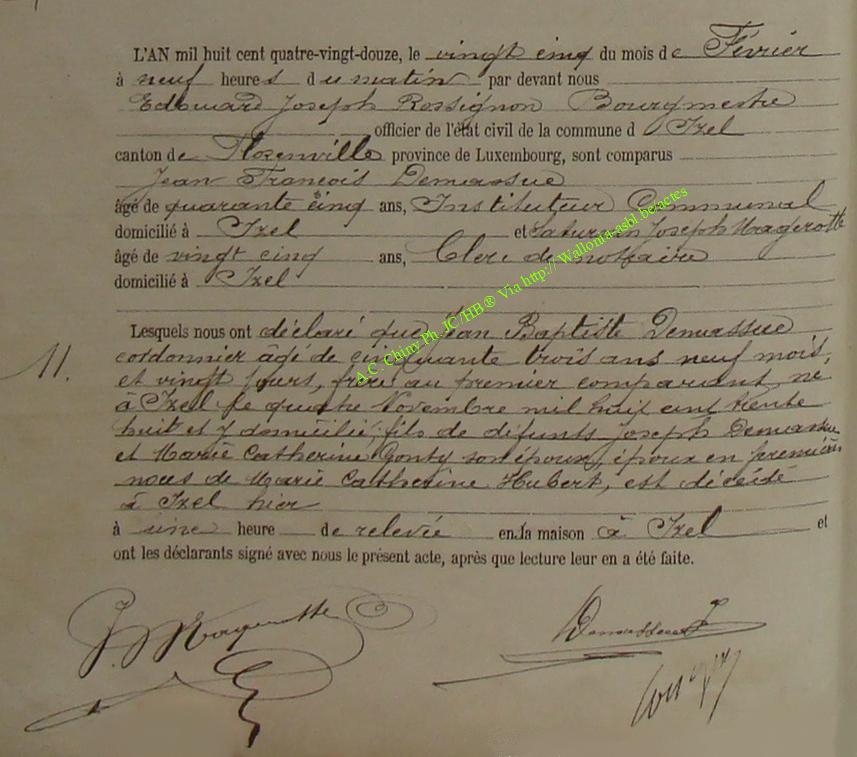 L'AN mil huit cent quatre-vingt-douze, le vingt cinq du mois de Février
à neuf heures du matin par devant nous
Edouard Joseph Rossignon Bourgmestre
officier de l'état civil de la commune d Izel
canton de Florenville province de Luxembourg, sont comparus
Jean François Demassue
âgé de quarante cinq ans, Instituteur Communal
domicilié à Izel et Saturnin Joseph Magerotte
âgé de vingt cinq ans, Clerc de notaire
domicilié à Izel
A.C. Chiny Ph. JC/HB® Via http:// Wallonia-asbl.be/actes
Lesquels nous ont déclaré que Jean Baptiste Demassue
11. cordonnier âgé de cinquante trois ans neuf mois,
et vingt jours, frère au premier comparant, né
à Izel le quatre Novembre mil huit cent trente
huit et y domicilié, fils de défunts Joseph Demassue
et Marie Catherine Gonty son épouse, époux en premières
noces de Marie Catherine Hubert, est décédé
à Izel hier
à une heure de relevée en la maison à Izel et
ont les déclarants signé avec nous le présent acte, après que lecture leur en a été faite.
J. Magerotte Demassue J